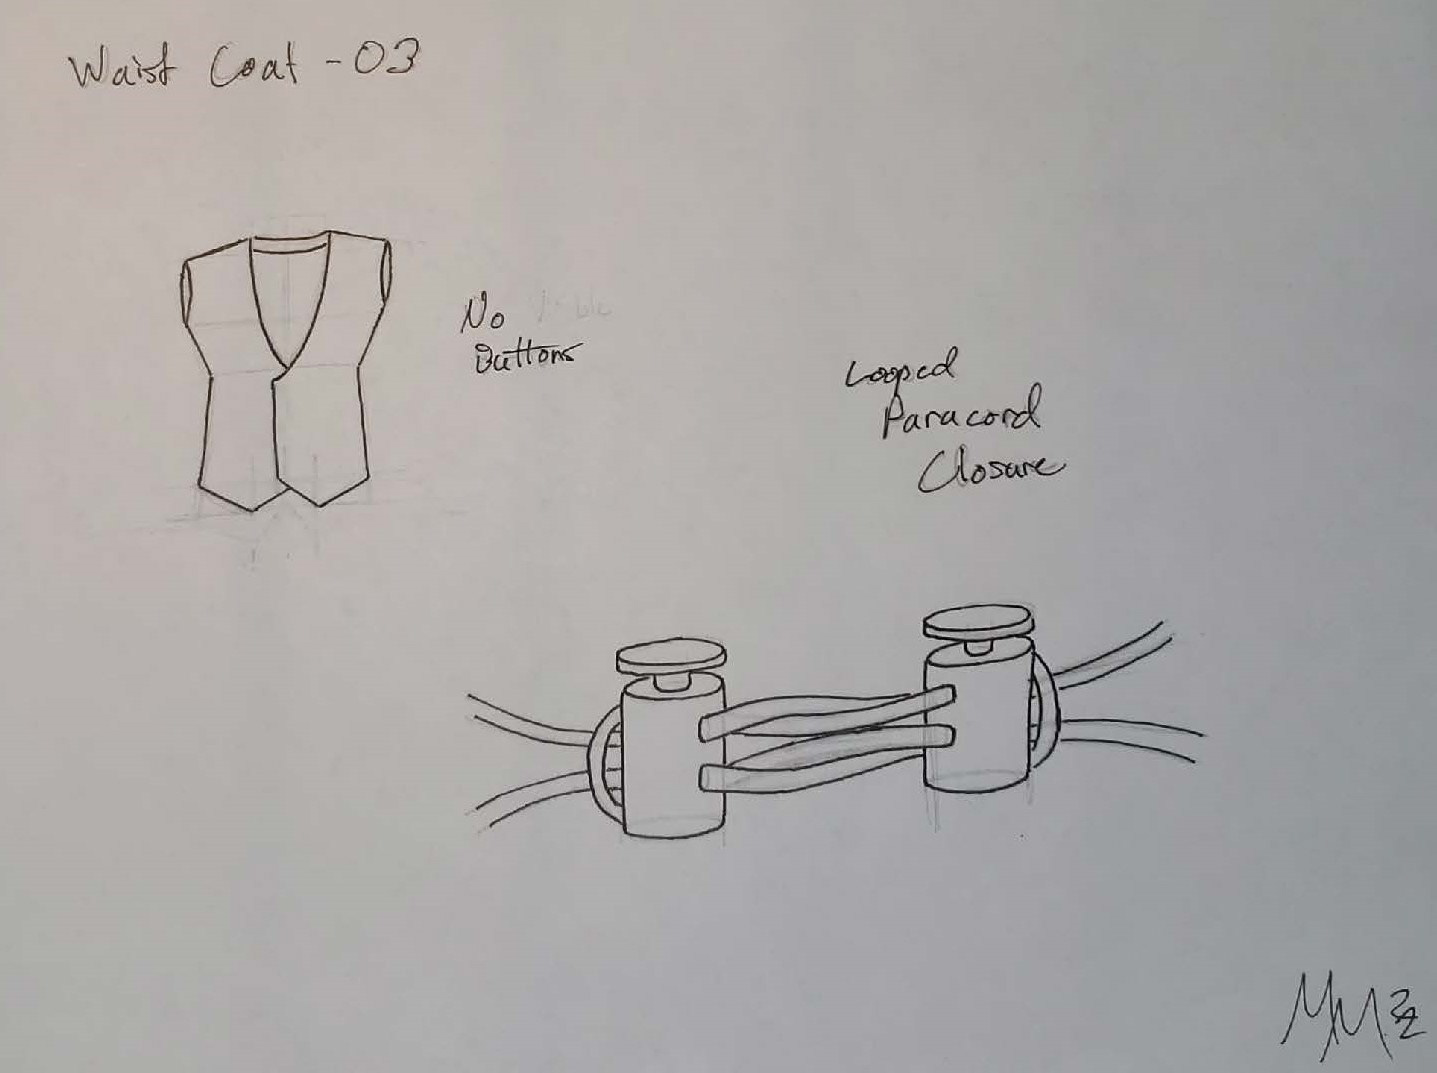 Waist Coat - 03
No
Buttons
Looped
Paracord
Closure